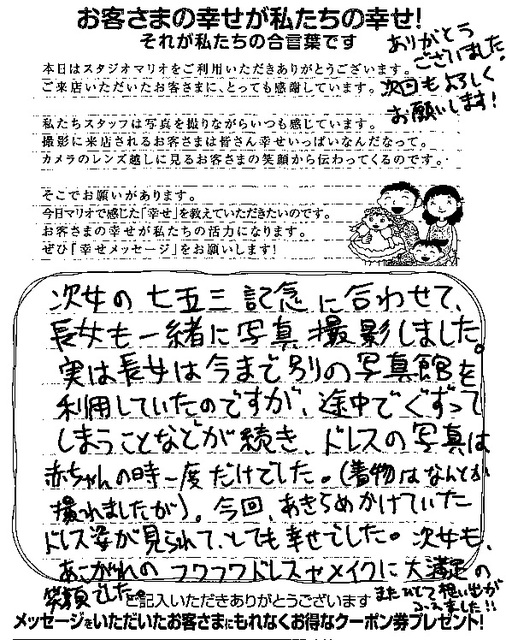 お客さまの幸せが私たちの幸せ!
それが私たちの合言葉です
ありがとう
ございました。
次回もよろしく
お願いします!
本日はスタジオマリオをご利用いただきありがとうございます。
ご来店いただいたお客さまに、とっても感謝しています。
私たちスタッフは写真を撮りながらいつも感じています。
撮影に来店されるお客さまは皆さん幸せいっぱいなんだなって。
カメラのレンズ越しに見るお客さまの笑顔から伝わってくるのです。
そこでお願いがあります。
今日マリオで感じた「幸せ」を教えていただきたいのです。
お客さまの幸せが私たちの活力になります。
ぜひ『幸せメッセージ』をお願いします!
次女の七五三記念に合わせて、
長女も一緒に写真撮影しました。
実は長女は今まで別の写真館を
利用していたのですが、途中でぐずって
しまうことなどが続き、ドレスの写真は
赤ちゃんの時一度だけでした。(着物はなんとか
撮れましたが)。今回、あきらめかけていた
ドレス姿が見られて、とても幸せでした。次女も、
あこがれのフワフワドレスやメイクに大満足の
笑顔でした。
またひとつ想い出が
ふえました!!
ご記入いただきありがとうございます
メッセージをいただいたお客さまにもれなくお得なクーポン券プレゼント!